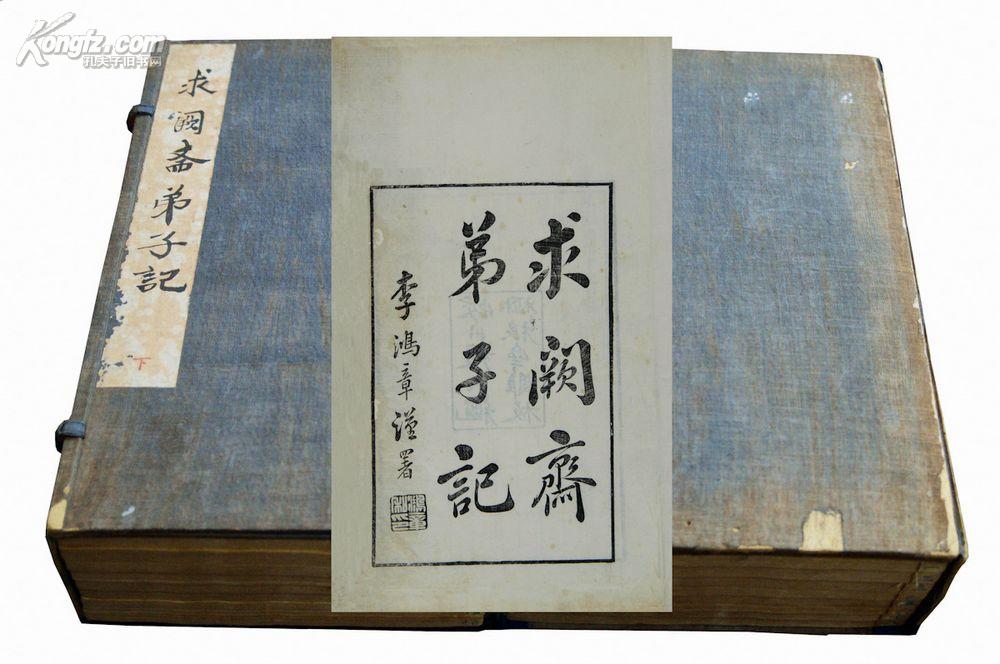 Kongfz.com
孔夫子旧书网
求阙斋弟子記
下
求阙齋
弟子記
李鴻章謹署